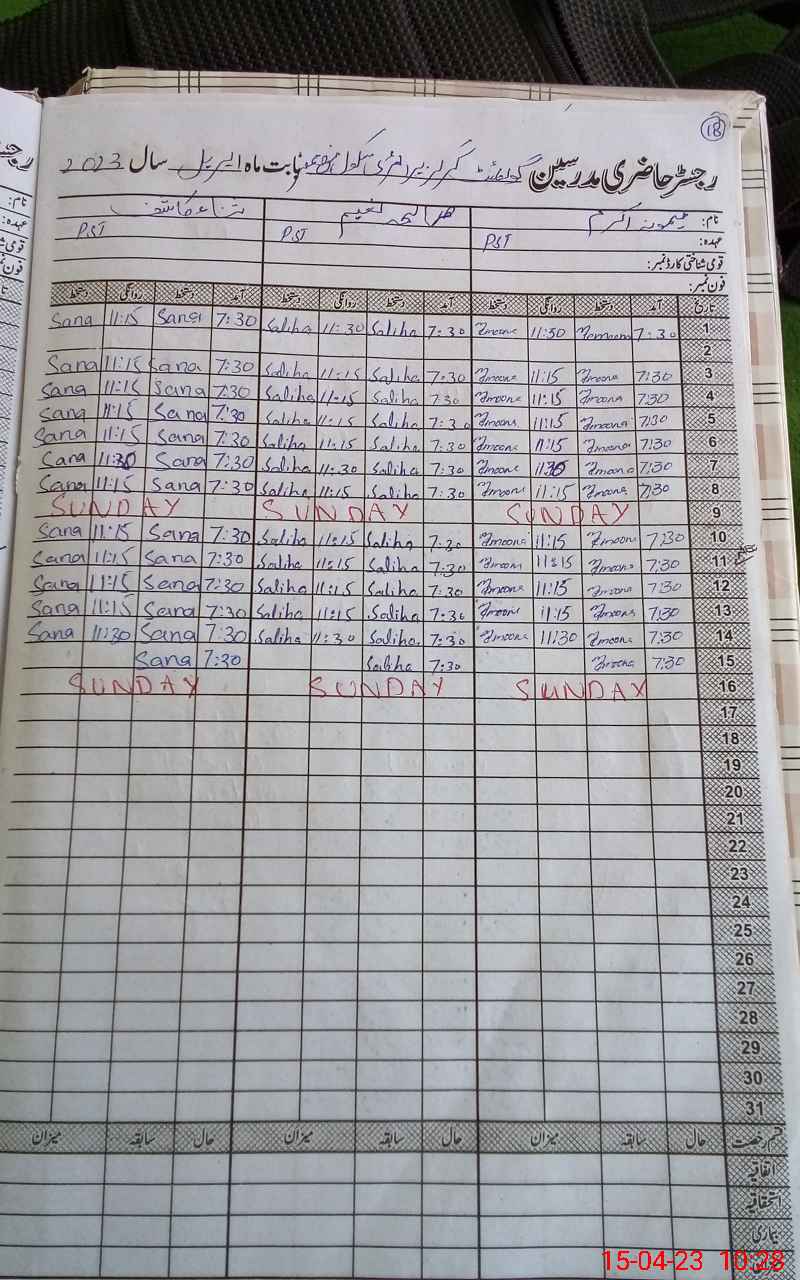 18
رجسٹر حاضری مدرسین گورنمنٹ گرلز پرائمری سکول بابت ماہ اپریل سال 2023
نام: میمونہ اکرم صالحہ نعیم ثناء کاشف
عہدہ: PST PST PST
قومی شناختی کارڈ نمبر:
فون نمبر:
تاریخ آمد دستخط روانگی دستخط آمد دستخط روانگی دستخط آمد دستخط روانگی دستخط
Sana 11:15 Sana 7:30 Saliha 11:30 Saliha 7:30 11:30 7:30 1
2
Sana 11:15 Sana 7:30 Saliha 11:15 Saliha 7:30 Emoona 11:15 Emoona 7:30 3
Sana 11:15 Sana 7:30 Saliha 11:15 Saliha 7:30 Emoona 11:15 Emoona 7:30 4
Sana 11:15 Sana 7:30 Saliha 11:15 Saliha 7:30 Emoona 11:15 Emoona 7:30 5
Sana 11:15 Sana 7:30 Saliha 11:15 Saliha 7:30 Emoona 11:15 Emoona 7:30 6
Sana 11:30 Sana 7:30 Saliha 11:30 Saliha 7:30 Emoona 11:30 Emoona 7:30 7
Sana 11:15 Sana 7:30 Saliha 11:15 Saliha 7:30 Emoona 11:15 Emoona 7:30 8
SUNDAY SUNDAY SUNDAY 9
Sana 11:15 Sana 7:30 Saliha 11:15 Saliha 7:30 Emoona 11:15 Emoona 7:30 10
Sana 11:15 Sana 7:30 Saliha 11:15 Saliha 7:30 Emoona 11:15 Emoona 7:30 11
Sana 11:15 Sana 7:30 Saliha 11:15 Saliha 7:30 Emoona 11:15 Emoona 7:30 12
Sana 11:15 Sana 7:30 Saliha 11:15 Saliha 7:30 Emoona 11:15 Emoona 7:30 13
Sana 11:30 Sana 7:30 Saliha 11:30 Saliha 7:30 Emoona 11:30 Emoona 7:30 14
Sana 7:30 Saliha 7:30 Emoona 7:30 15
SUNDAY SUNDAY SUNDAY 16
17
18
19
20
21
22
23
24
25
26
27
28
29
30
31
قسم رخصت حال سابقہ میزان حال سابقہ میزان حال سابقہ میزان
اتفاقیہ
استحقاقیہ
بیماری
15-04-23 10:28